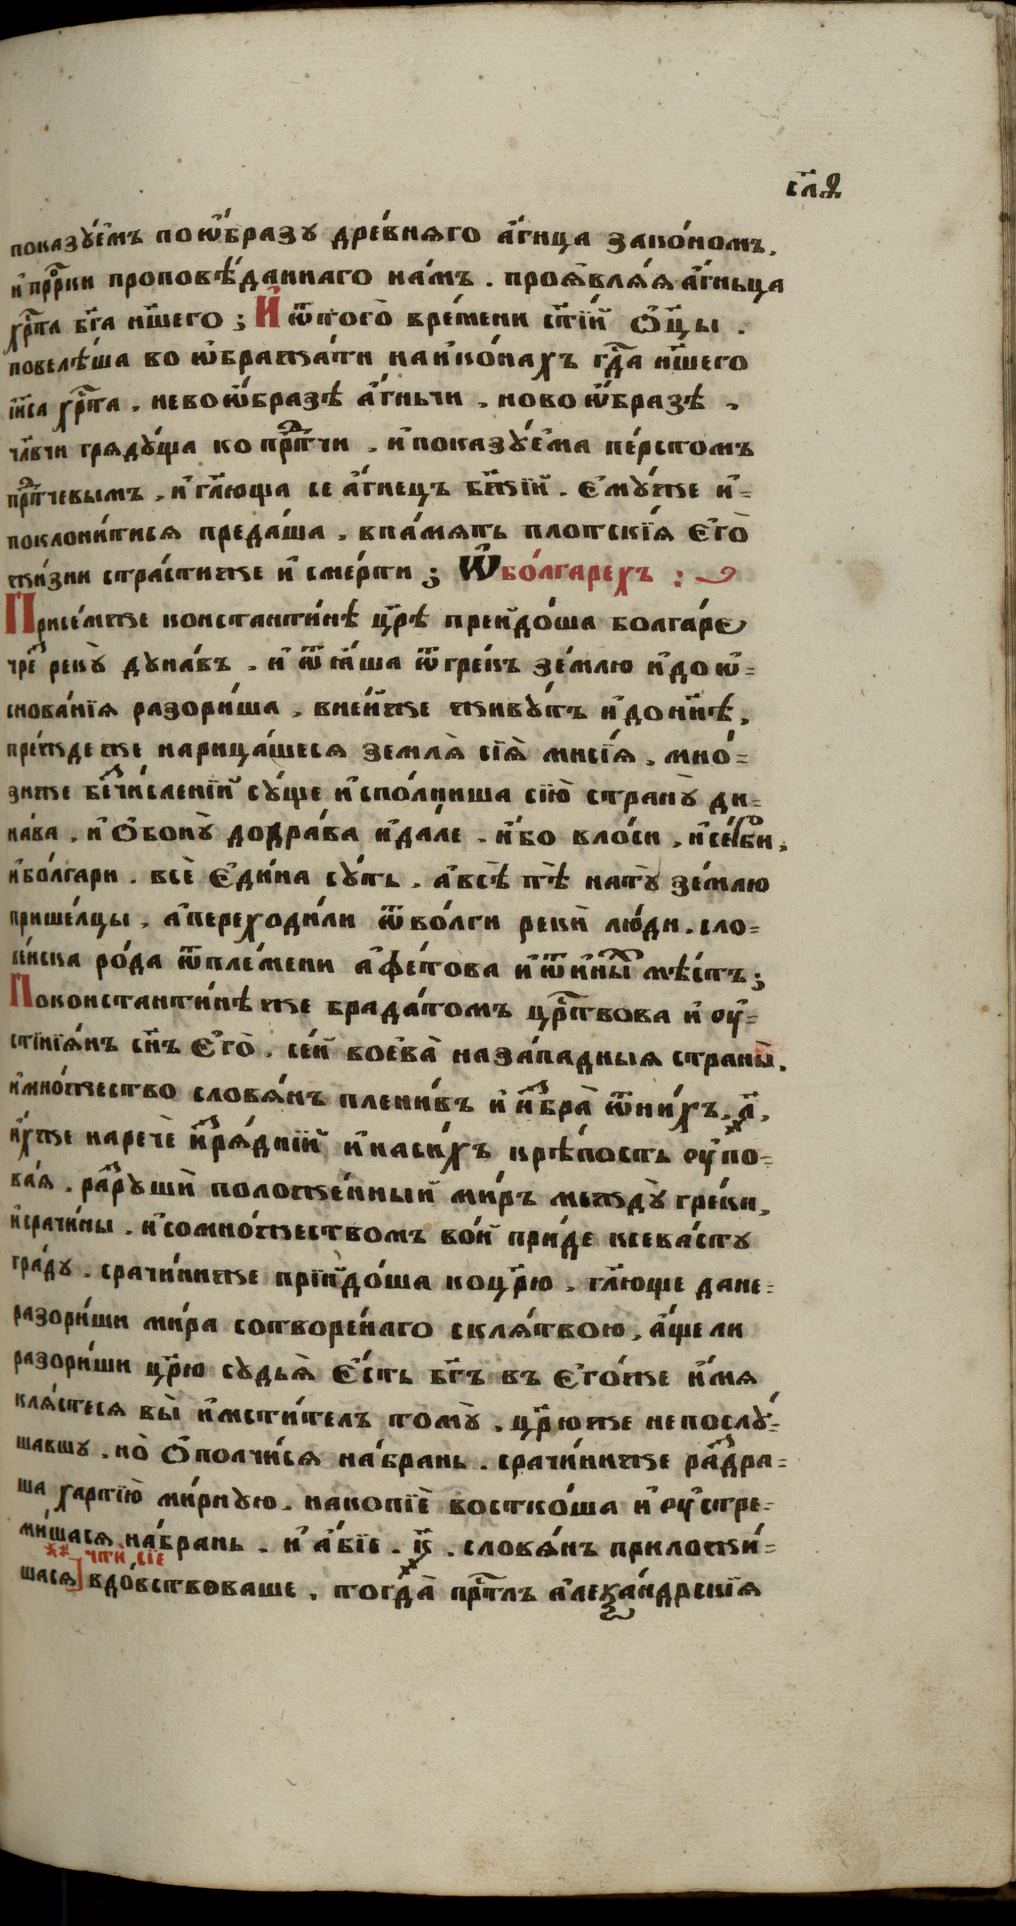 сл҃ѳ
показꙋ́емъ по ѡ҆́бразꙋ дре́вняго а҆́гнца зако́номъ,
и҆ прⷪ҇рки проповѣ́даннаго на́мъ. проѧвлѧ́ѧ а҆́гньца
хрⷭ҇та бг҃а нш҃его; И҆ ѿ того̀ вре́мени ст҃і́и ѻ҆ц҃ы .
повелѣ́ша во ѡ҆бражати на и҆ко́нахъ гдⷭ҇а нш҃его
і҆и҃са хрⷭ҇та . не во ѡ҆́бразѣ а҆́гньчи , но во ѡ҆́бразѣ ,
чл҃вчи грядꙋ́ща ко прⷣтчи , и҆ показꙋ́ема пе́рстомъ
прⷣтчевымъ , и҆ гл҃юща се а҆́гнецъ бж҃їй . є҆мꙋ́же и҆=
поклони́тися преда́ша , в па́мять пло́тскїѧ є҆го̀
жи́зни стра́сти же и҆ сме́рти ; Ѡ҆ бо́лгарехъ :
При се́мже константи́нѣ цр҃ѣ преидо́ша болга́ре
чреⷥ рекꙋ̀ дꙋна́въ . и҆ ѿѧ́ша ѿ гре́къ зе́млю и҆ до ѡ҆=
снова́нїѧ разори́ша , в не́йже живꙋ́тъ и҆ до нн҃ѣ ,
пре́жде же нарица́шесѧ землѧ̀ сїѧ̀ ми́сїѧ , мно́=
зиже беⷥчи́сленїи сꙋ́ще и҆спо́лниша сїю̀ странꙋ̀ дꙋ=
на́ва , и҆ ѻ҆боюꙋ̀ до дра́ва и҆ да́ле . и҆́бо вло́си , и҆ се́рби ,
и҆ бо́лгари . всѐ є҆ди́на сꙋ́ть . а҆ всѣ̀ тѣ̀ на тꙋ̀ зе́млю
прише́лцы , а҆ переходи́ли ѿ во́лги реки̇̀ лю́ди . сло=
ве́нска ро́да ѿ пле́мени а҆фе́това и҆ ѿ и҆ны́хъ мѣ́стъ ;
По константи́нѣ же брада́томъ црⷭ҇твова и҆ ᲂу҆=
стїнїѧ́нъ сн҃ъ є҆го̀ . се́й воева̀ на за́падныѧ страны̀ .
и҆ мно́жество словѧ́нъ плени́въ и҆ и҆ⷥбра̀ ѿ ни́хъ . л҃ ,
и҆́хже наречѐ и҆ⷥрѧ́днїи и҆ на си́хъ крѣ́пость ᲂу҆по=
ва́ѧ . раⷥрꙋши̇̀ положе́нный ми́ръ междꙋ̀ гре́ки ,
и҆ срачи́ны . и҆ со мно́жествомъ во́й прїи́де к сева́стꙋ
гра́дꙋ . срачи́ниже прїидо́ша ко цр҃ю . гл҃юще да не=
разори́ши ми́ра сотворе́наго с клѧ́твою , а҆́ще ли
разори́ши цр҃ю сꙋдьѧ̀ є҆́сть бг҃ъ въ є҆го́же и҆́мѧ
клѧ́стесѧ вы̀ и҆ мсти́тель томꙋ̀ . цр҃юже не послꙋ́=
шавшꙋ . но̀ ѻ҆полчи́сѧ на́ брань . срачи́ниже раⷥдра=
ша хартїю̀ ми́рнꙋю . на копїѐ востко́ша и҆ ᲂу҆стре=
ми́шасѧ на́ брань . и҆ а҆́бїе . к҃ . словѧ́нъ приложи́=
чти̇̀ сїе
шасѧ] вдо́вствоваше , тогда̀ прⷭ҇тлъ а҆леѯа́ндрскїѧ